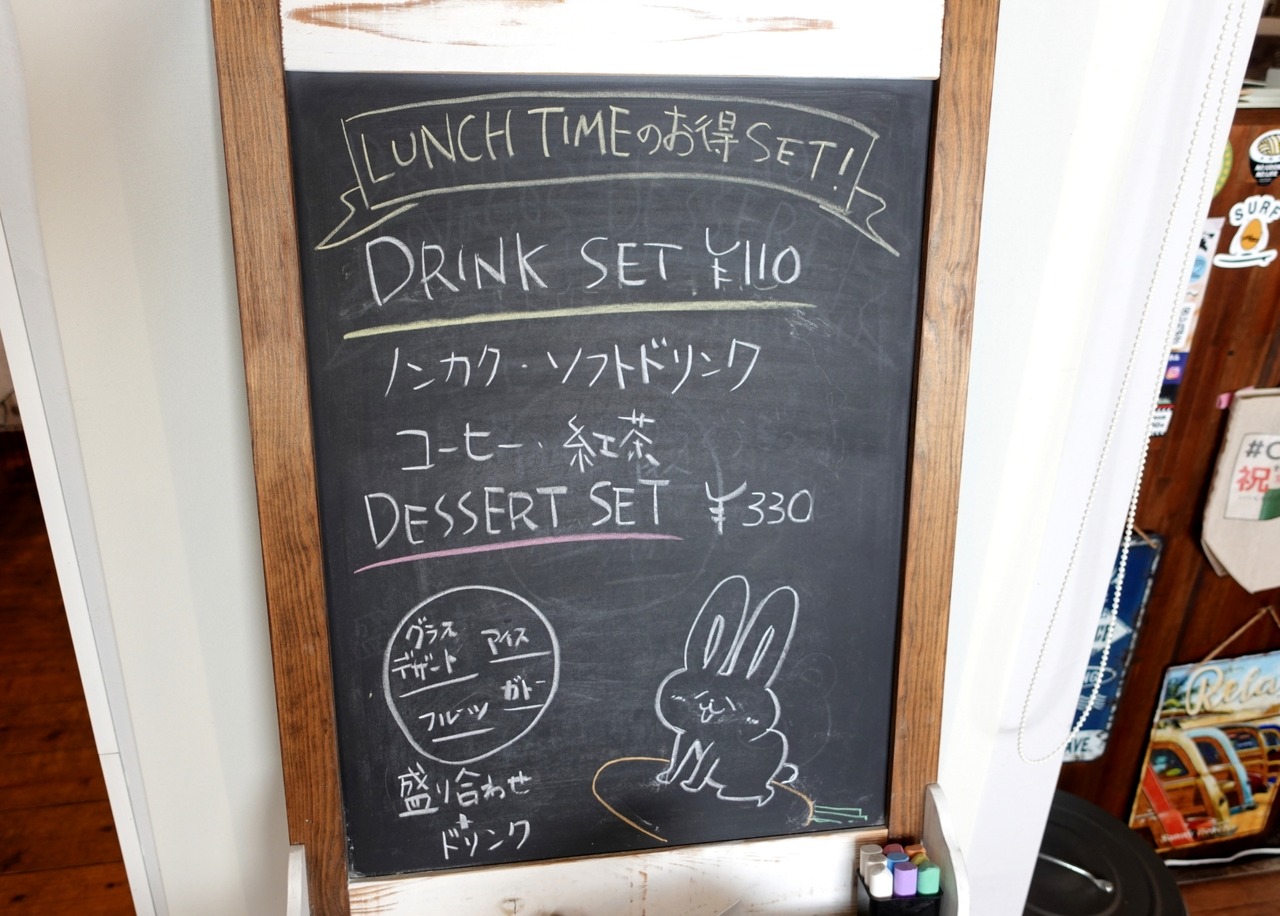 LUNCH TIMEのお得 SET!
DRINK SET ¥110
ノンカク・ソフトドリンク
コーヒー・紅茶
DESSERT SET ¥330
グラス
デザート
アイス
ガトー
フルーツ
盛り合わせ
+
ドリンク
SURF
祝
Rela